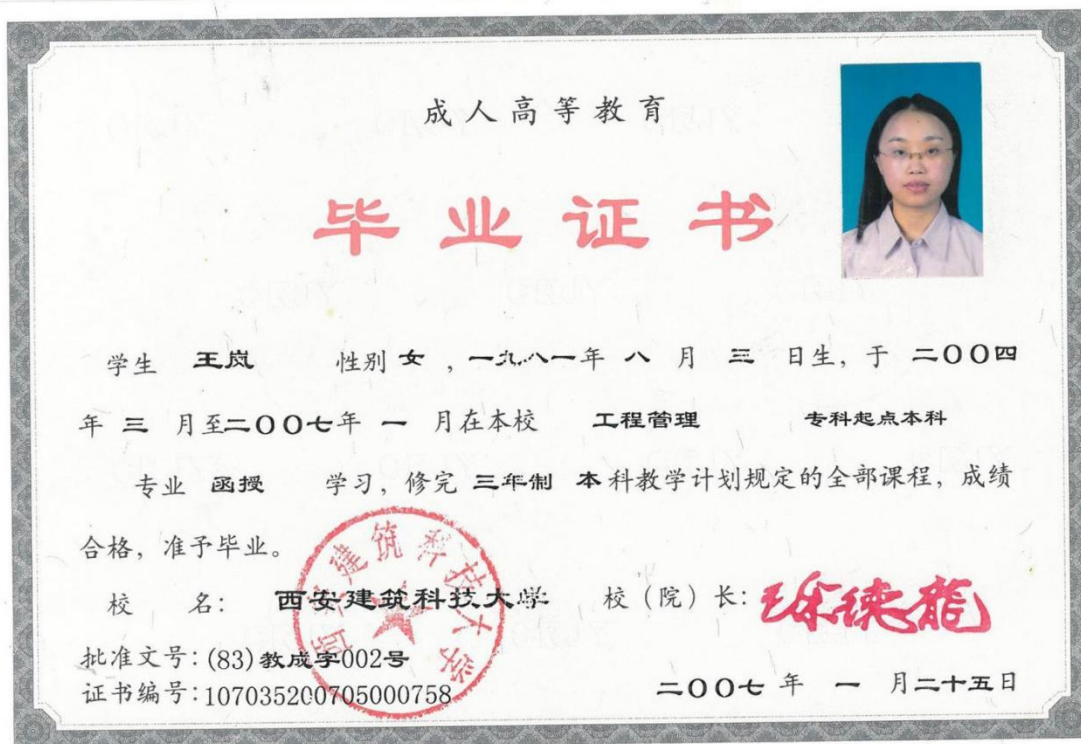 成人高等教育
毕业证书
学生 王岚 性别 女 ，一九八一年 八 月 三 日生，于 二〇〇四
年 三 月至二〇〇七年 一 月在本校 工程管理 专科起点本科
专业 函授 学习，修完 三年制 本 科教学计划规定的全部课程，成绩
合格，准予毕业。
校 名： 西安建筑科技大学 校（院）长：徐德龙
批准文号：(83)教成字002号
证书编号：107035200705000758
二〇〇七 年 一 月二十五日
西安建筑科技大学